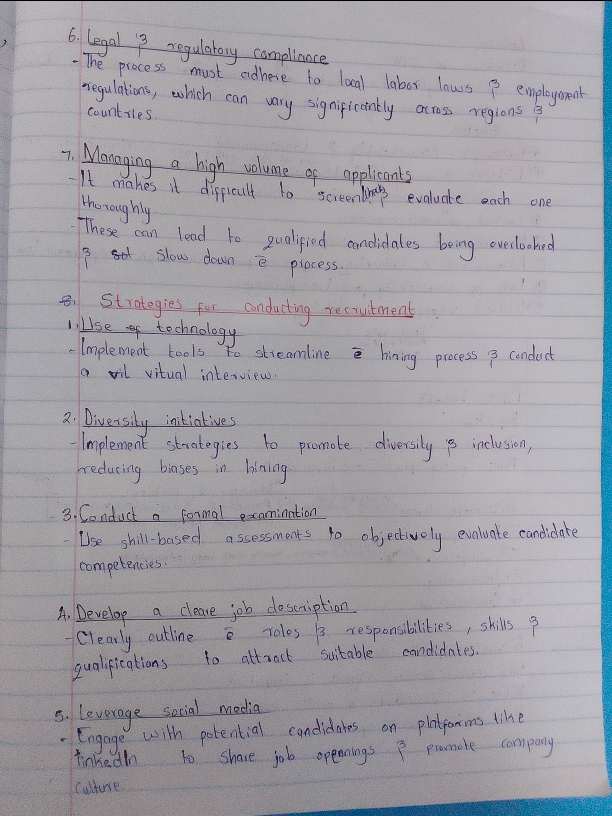 6. Legal & regulatory compliance
- The process must adhere to local labor laws & employment
regulations, which can vary significantly across regions &
countries.
7. Managing a high volume of applicants
- It makes it difficult to screen & evaluate each one
thoroughly
- These can lead to qualified candidates being overlooked
& slow down ē process.
8. Strategies for conducting recruitment
1. Use of technology
- Implement tools to streamline ē hining process & conduct
a vitual interview.
2. Diversity initiatives
- Implement strategies to promote diversity & inclusion,
reducing biases in hining
3. Conduct a formal examination
- Use skill-based assessments to objectively evaluate candidate
competencies.
4. Develop a cleare job description
- Clearly outline ē roles & responsibilities, skills &
qualifications to attract suitable candidates.
5. Leverage social media
- Engage with potential candidates on platforms like
linkedIn to share job openings & promote company
culture